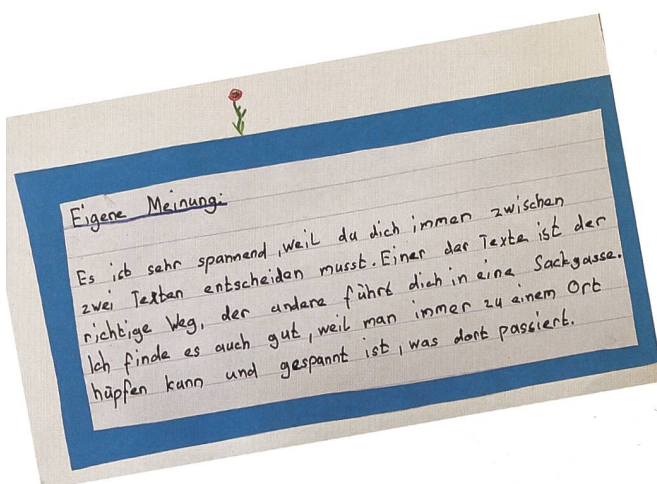 Eigene Meinung:
Es ist sehr spannend, weil du dich immer zwischen
zwei Texten entscheiden musst. Einer der Texte ist der
richtige Weg, der andere führt dich in eine Sackgasse.
Ich finde es auch gut, weil man immer zu einem Ort
hüpfen kann und gespannt ist, was dort passiert.